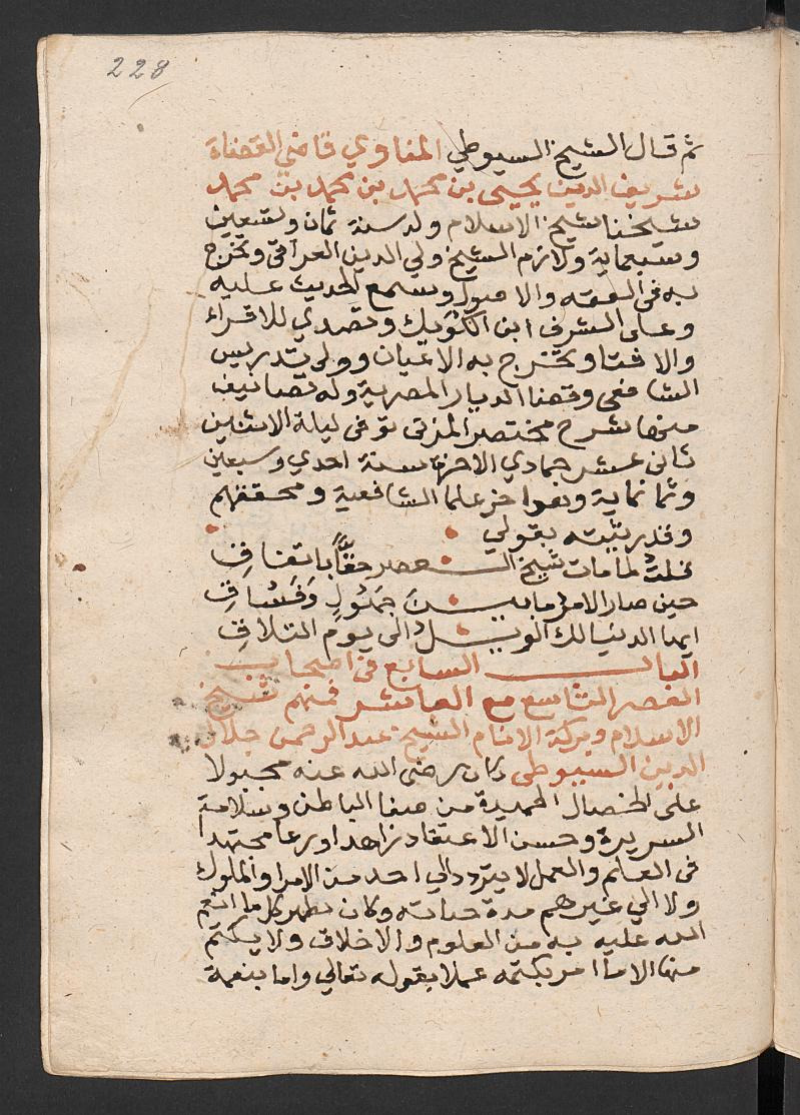 228
ثم قال الشيخ السيوطي المناوي قاضي القضاة
شريف الدين يحيى بن محمد بن محمد بن محمد
شيخنا شيخ الاسلام ولد سنة ثمان وتسعين
وسبعماية ولازم الشيخ ولي الدين العراقي وتخرج
به في الفقه والاصول وسمع الحديث عليه
وعلى الشرف ابن الكويك وتصدي للاقراء
والافتا وتخرج به الاعيان وولي تدريس
الشافعي وقضا الديار المصرية وله تصانيف
منها شرح مختصر المزني توفي ليلة الاثنين
ثاني عشر جمادي الاخرة سنة احدي وسبعين
وثمانماية وهو اخر علما الشافعية ومحققهم
وقد رثيته بقولي
قلت لما مات شيخ العصر حقا باتفاق
حين صار الامر ما بين جهول وفساق
ايها الدنيا لك الويل الى يوم التلاق
الباب السابع في اصحاب
العصر التاسع مع العاشر فمنهم شيخ
الاسلام وبركة الانام الشيخ عبد الرحمن جلال
الدين السيوطي كان رضي الله عنه مجبولا
على الخصال الحميدة من صفا الباطن وسلامة
السريرة وحسن الاعتقاد زاهدا ورعا مجتهدا
في العلم والعمل لا يتردد الي احد من الامرا والملوك
ولا الي غيرهم مدة حياته وكان يظهر كل ما انعم
الله عليه به من العلوم والاخلاق ولا يكتم
منها الا ما امر بكتمه عملا بقوله تعالي واما بنعمة